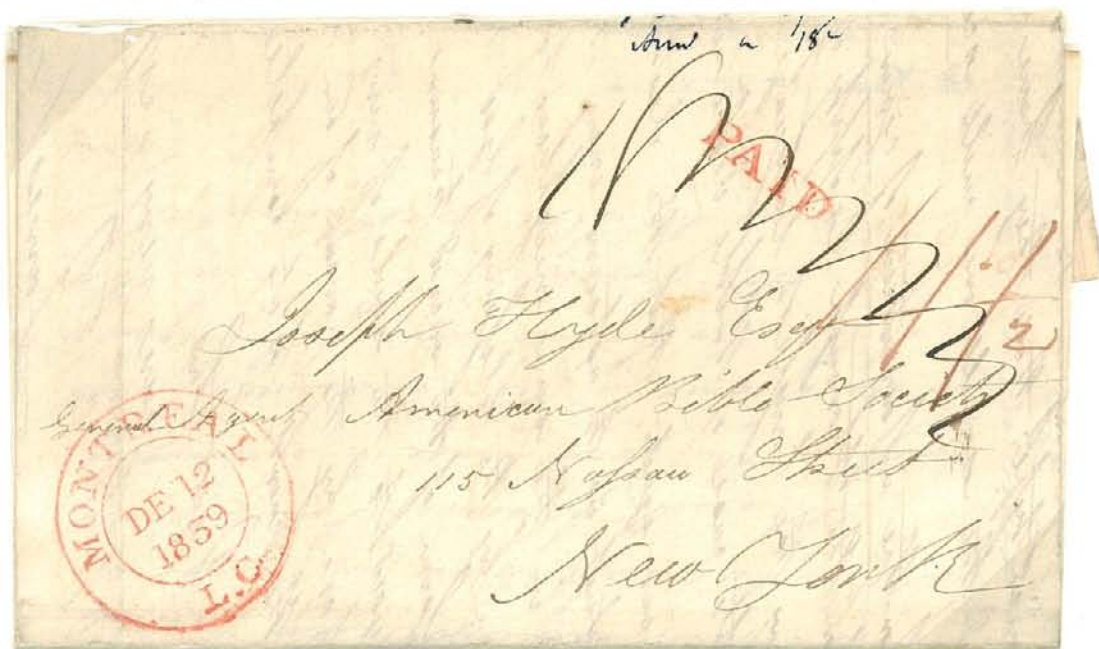 PAID
1/1½
Joseph Hyde Esqr
General Agent American Bible Society
115 Nassau Street
New York
MONTREAL
DE 12
1839
L.C.